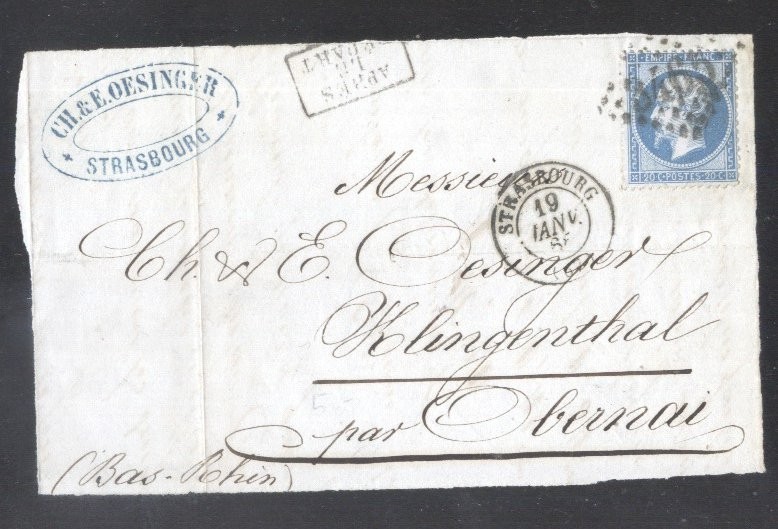 CH. & E. OESINGER
STRASBOURG
APRES
LE
DEPART
EMPIRE FRANC
20 C · POSTES · 20 C
STRASBOURG
19
JANV.
Messieurs
Ch. & E. Oesinger
Klingenthal
par Obernai
(Bas-Rhin)